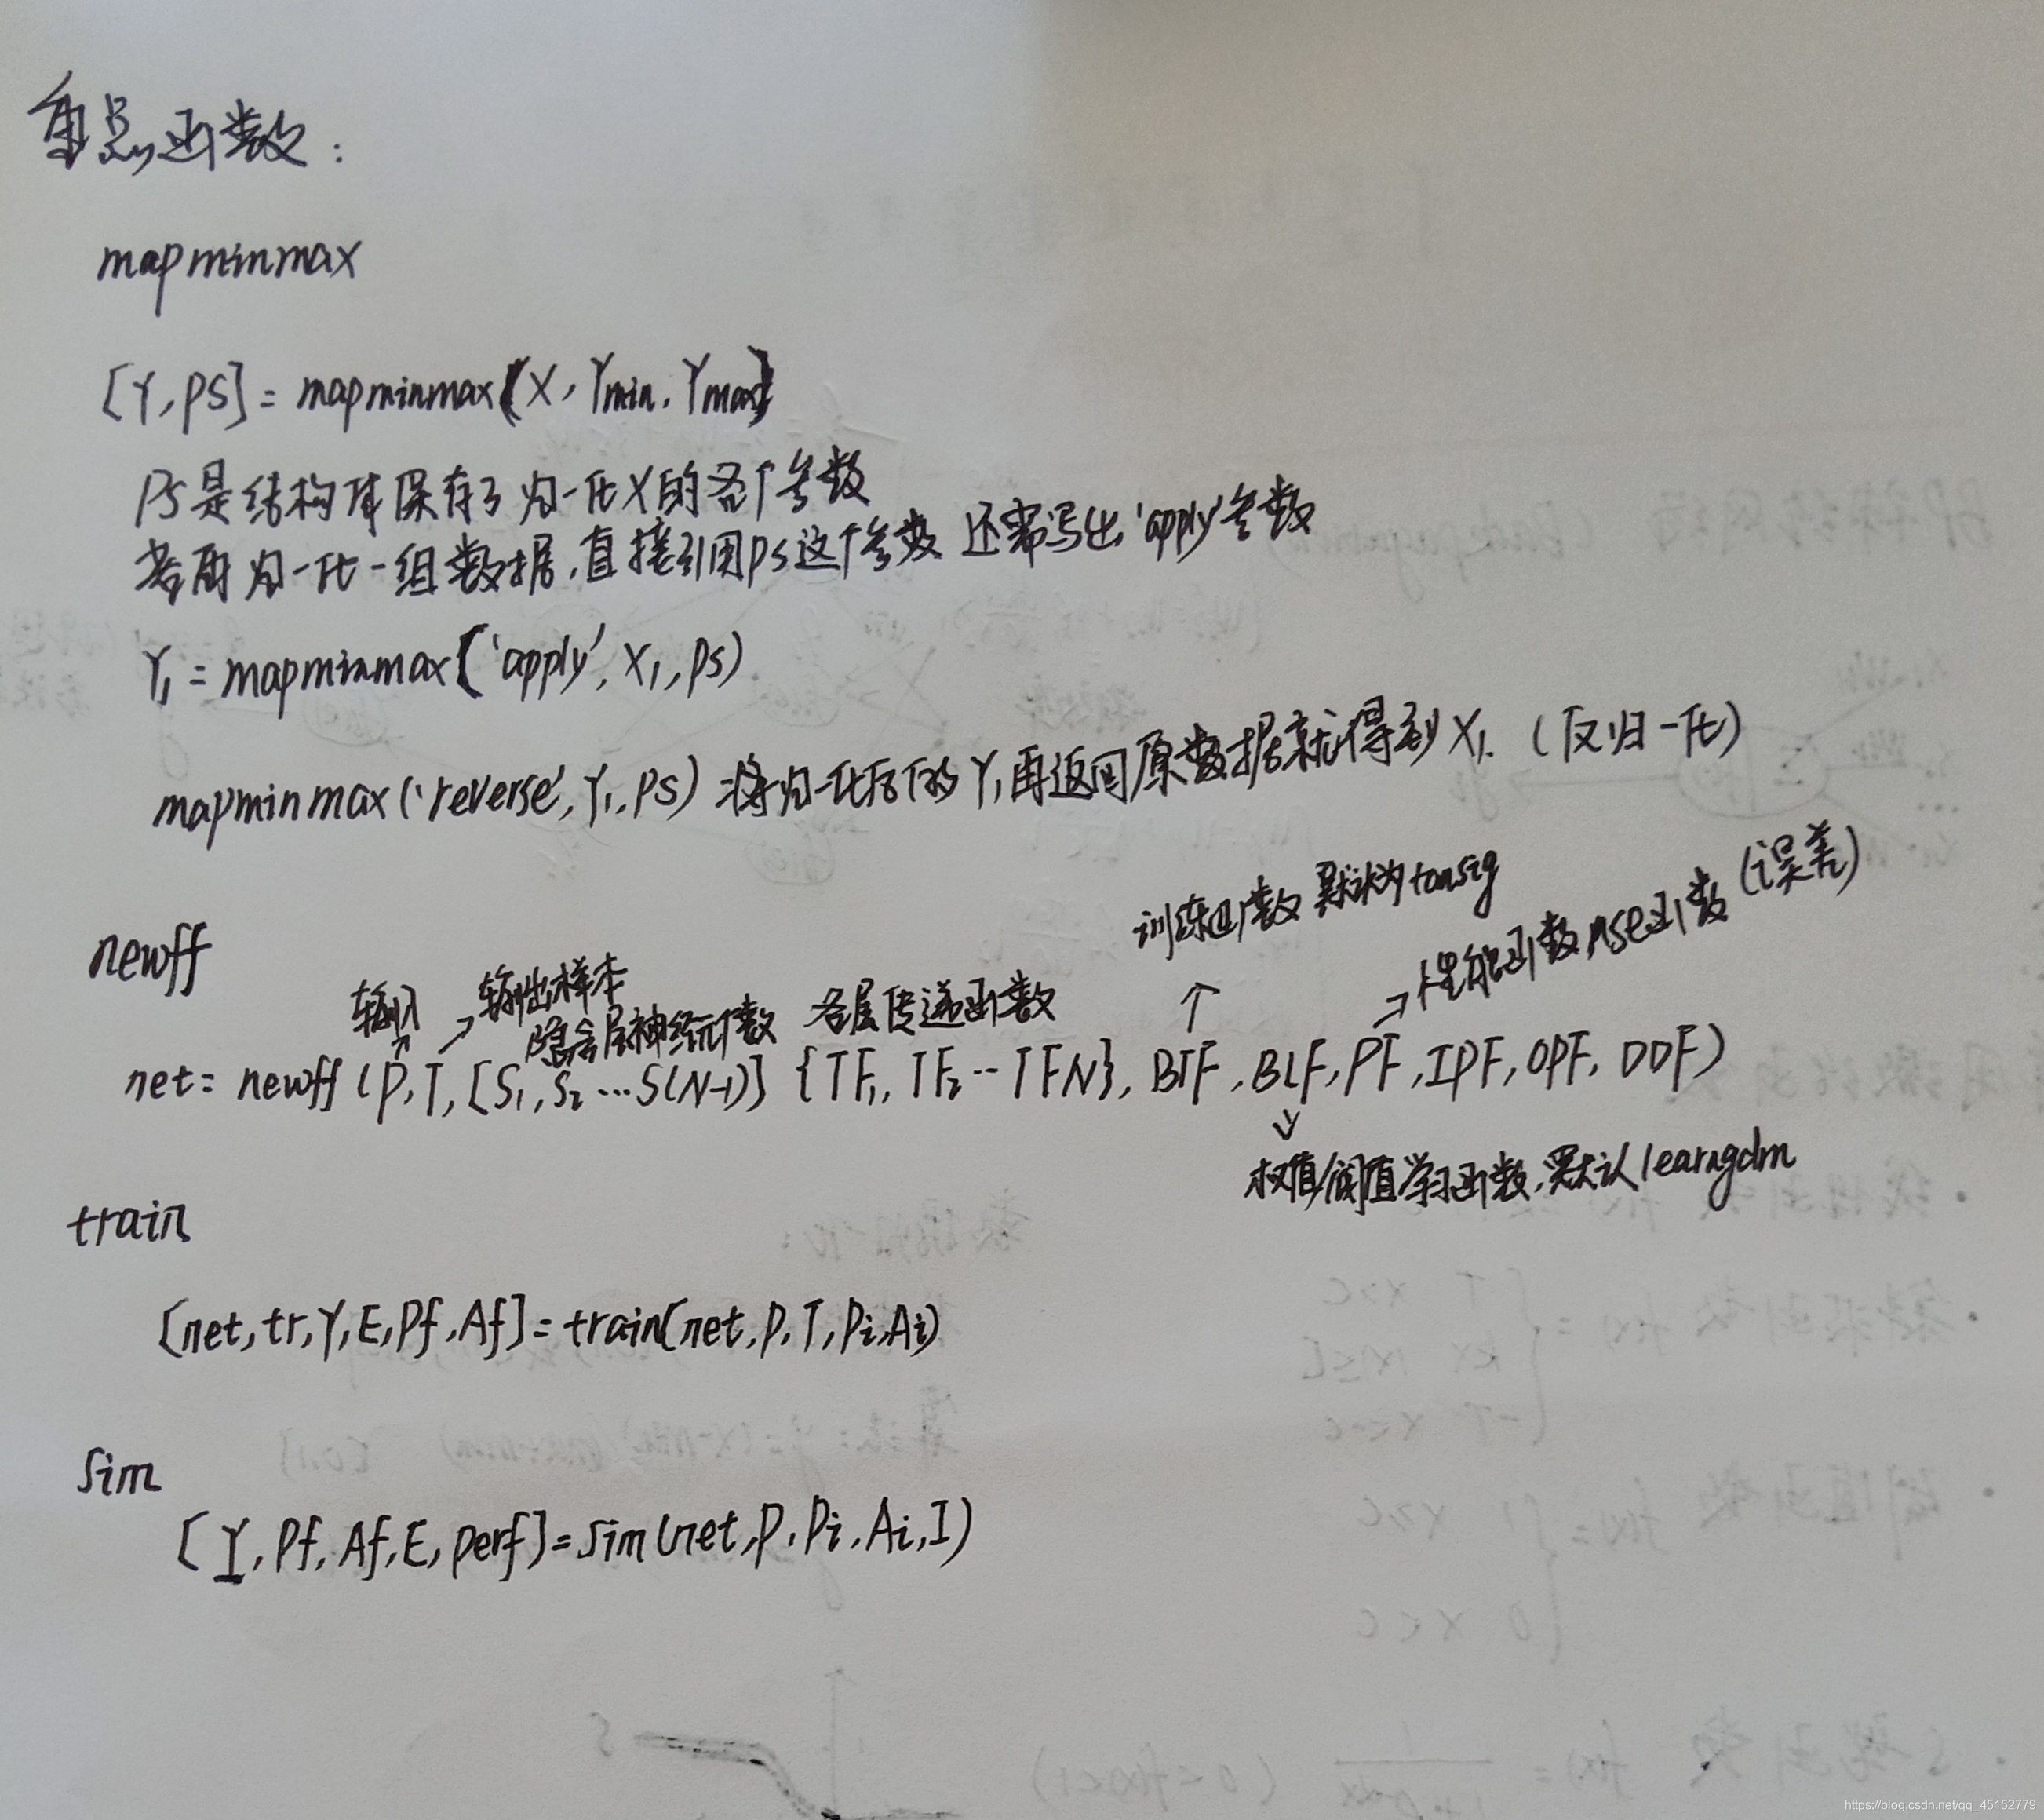 重点函数：
mapminmax
[Y,PS]=mapminmax(X,Ymin,Ymax)
PS是结构体保存了归一化X的各个参数
若再归一化一组数据,直接引用PS这个参数 还需写出'apply'参数
Y1=mapminmax('apply',X1,PS)
mapminmax('reverse',Y1,PS) 将归一化后的Y1再返回原数据就得到X1.（反归一化）
训练函数 默认为tansig
性能函数mse函数(误差)
newff
输入 输出样本
隐含层神经元个数 各层传递函数
net=newff(P,T,[S1,S2…S(N-1)] {TF1,TF2…TFN},BTF,BLF,PF,IPF,OPF,DDF)
权值/阈值学习函数,默认learngdm
train
[net,tr,Y,E,Pf,Af]=train(net,P,T,Pi,Ai)
sim
[Y,Pf,Af,E,perf]=sim(net,P,Pi,Ai,I)
https://blog.csdn.net/qq_45152779